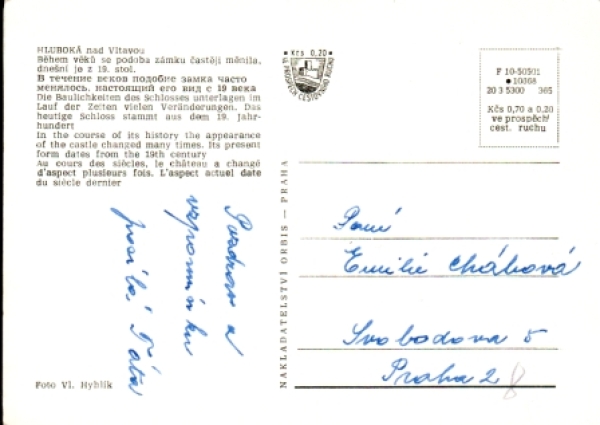 HLUBOKÁ nad Vltavou
Během věků se podoba zámku častěji měnila,
dnešní je z 19. stol.
В течение веков подобие замка часто
менялось, настоящий его вид с 19 века
Die Baulichkeiten des Schlosses unterlagen im
Lauf der Zeiten vielen Veränderungen. Das
heutige Schloss stammt aus dem 19. Jahr-
hundert
In the course of its history the appearance
of the castle changed many times. Its present
form dates from the 19th century
Au cours des siècles, le château a changé
d'aspect plusieurs fois. L'aspect actuel date
du siècle dernier
Kčs 0,20
VE PROSPĚCH CESTOVNÍHO RUCHU
F 10-50501
10368
20 3 5300 365
Kčs 0,70 a 0,20
ve prospěch
cest. ruchu
Pozdrav a
vzpomínku
posílá Táta
NAKLADATELSTVÍ ORBIS — PRAHA
Paní
Emilie Chábová
Svobodova 5
Praha 2
8
Foto Vl. Hyhlík